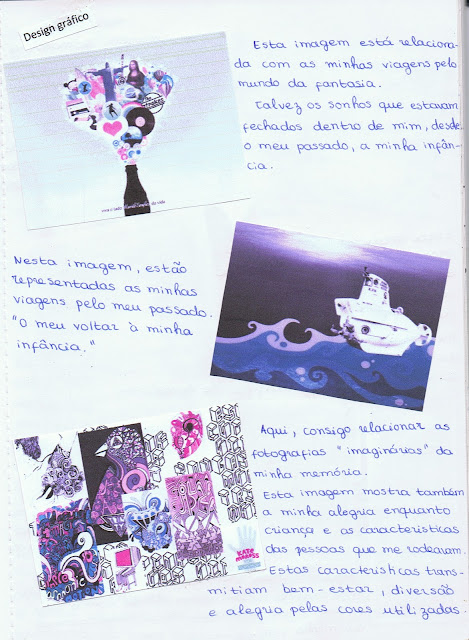 Design gráfico
Esta imagem está relaciona-
da com as minhas viagens pelo
mundo da fantasia.
Talvez os sonhos que estavam
fechados dentro de mim, desde
o meu passado, a minha infân-
cia.
Nesta imagem, estão
representadas as minhas
viagens pelo meu passado.
"O meu voltar à minha
infância."
Aqui, consigo relacionar as
fotografias "imaginárias" da
minha memória.
Esta imagem mostra também
a minha alegria enquanto
criança e as características
das pessoas que me rodearam.
Estas características trans-
mitiam bem-estar, diversão
e alegria pelas cores utilizadas.